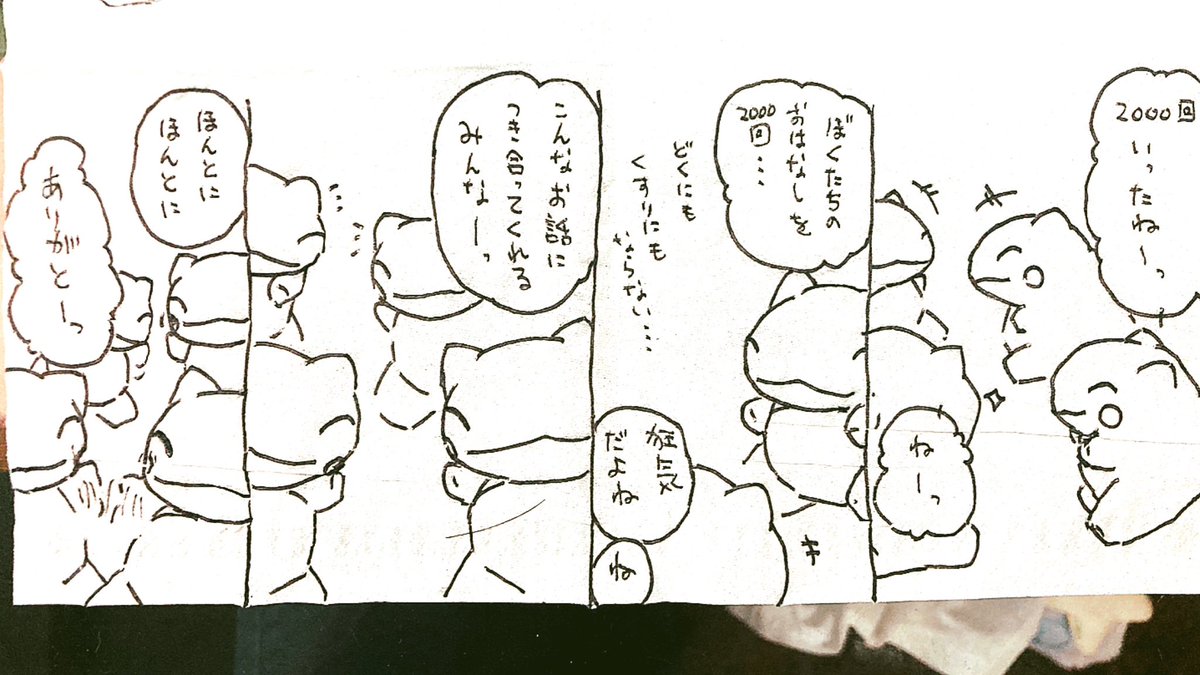 2000回
いったねーっ
ねーっ
ぼくたちの
おはなしを
2000回・・・
どくにも
くすりにも
ならない・・・
狂気
だよね
ね
こんなお話に
つき合ってくれる
みんなーっ
ほんとに
ほんとに
ありがとーっ